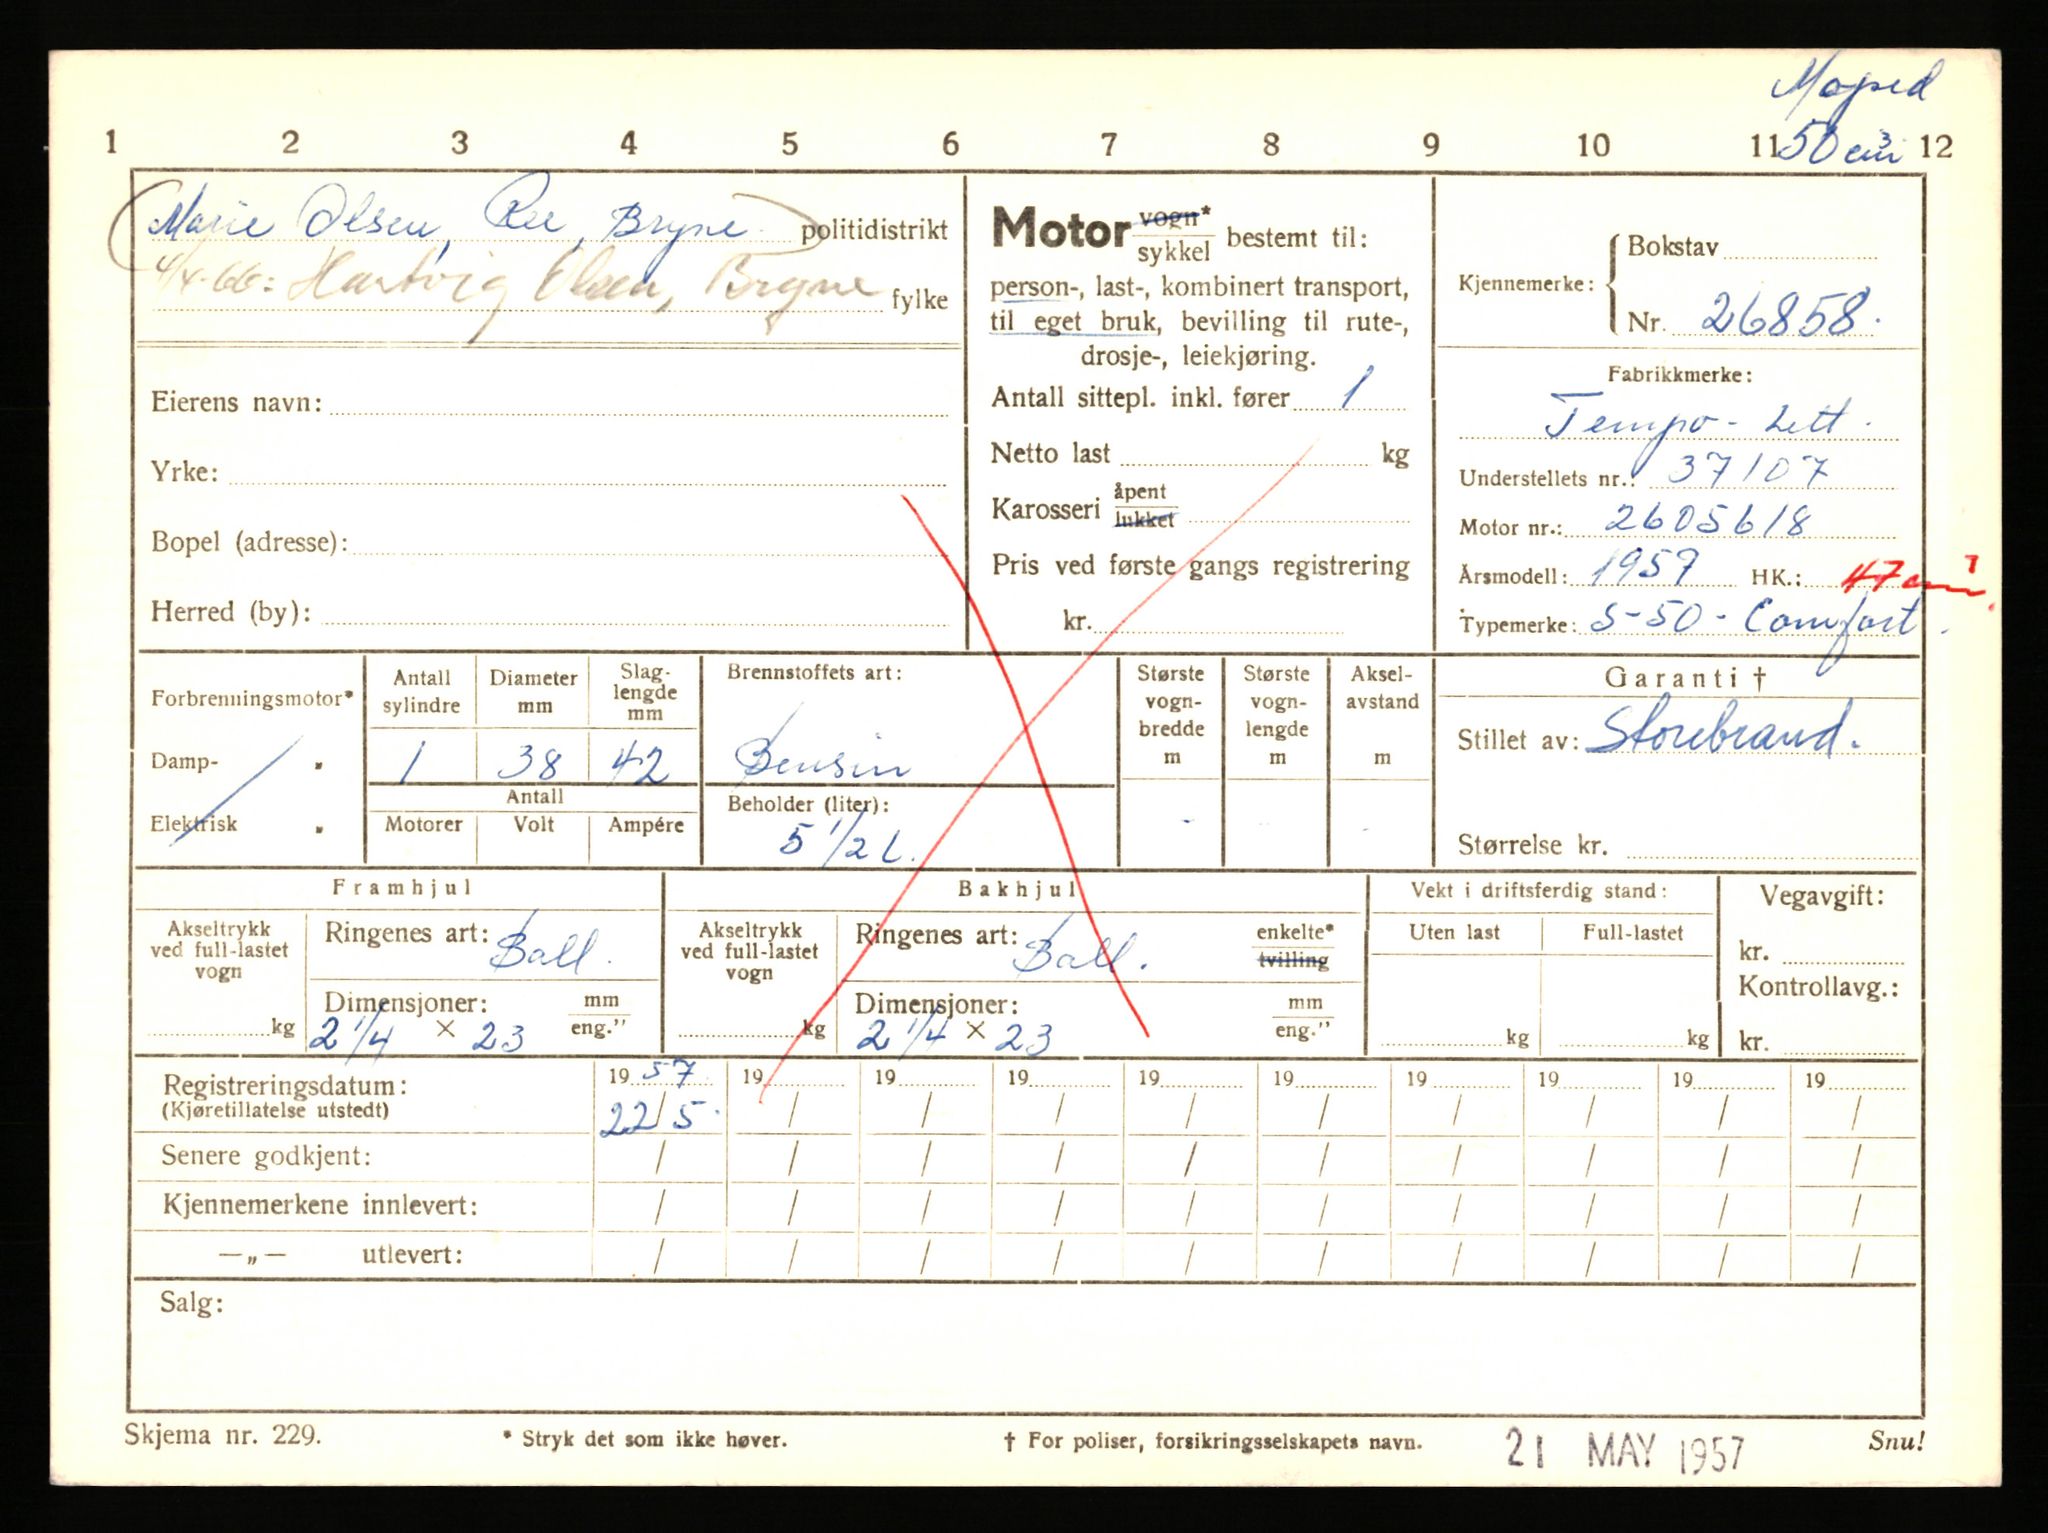 Moped
1 2 3 4 5 6 7 8 9 10 11 12
50 cm³
Marie Olsen, Ree, Bryne politidistrikt
4/4-66: Hartvig Olsen, Bryne fylke
Eierens navn:
Yrke:
Bopel (adresse):
Herred (by):
Motor vogn* / sykkel bestemt til:
person-, last-, kombinert transport,
til eget bruk, bevilling til rute-,
drosje-, leiekjøring.
Antall sittepl. inkl. fører 1
Netto last kg
Karosseri åpent / lukket
Pris ved første gangs registrering
kr.
Kjennemerke: Bokstav
Nr. 26858.
Fabrikkmerke:
Tempo - Lett.
Understellets nr.: 37107
Motor nr.: 2605618
Årsmodell: 1957 HK.: 47 cm³
Typemerke: S-50 - Comfort.
Forbrenningsmotor*
Damp- "
Elektrisk "
Antall sylindre Diameter mm Slag-lengde mm
1 38 42
Antall
Motorer Volt Ampére
Brennstoffets art:
Bensin
Beholder (liter):
5 1/2 l.
Største vogn-bredde m
Største vogn-lengde m
Aksel-avstand m
Garanti †
Stillet av: Storebrand.
Størrelse kr.
Framhjul
Akseltrykk
ved full-lastet
vogn
kg
Ringenes art: Ball.
Dimensjoner: mm / eng."
2 1/4 × 23
Bakhjul
Akseltrykk
ved full-lastet
vogn
kg
Ringenes art: Ball. enkelte* / tvilling
Dimensjoner: mm / eng."
2 1/4 × 23
Vekt i driftsferdig stand:
Uten last Full-lastet
kg kg
Vegavgift:
kr.
Kontrollavg.:
kr.
Registreringsdatum: 19 57 19 19 19 19 19 19 19 19 19
(Kjøretillatelse utstedt) 22/5. / / / / / / / / /
Senere godkjent: / / / / / / / / / /
Kjennemerkene innlevert: / / / / / / / / / /
—„— utlevert: / / / / / / / / / /
Salg:
Skjema nr. 229. * Stryk det som ikke høver. † For poliser, forsikringsselskapets navn. 21 MAY 1957 Snu!